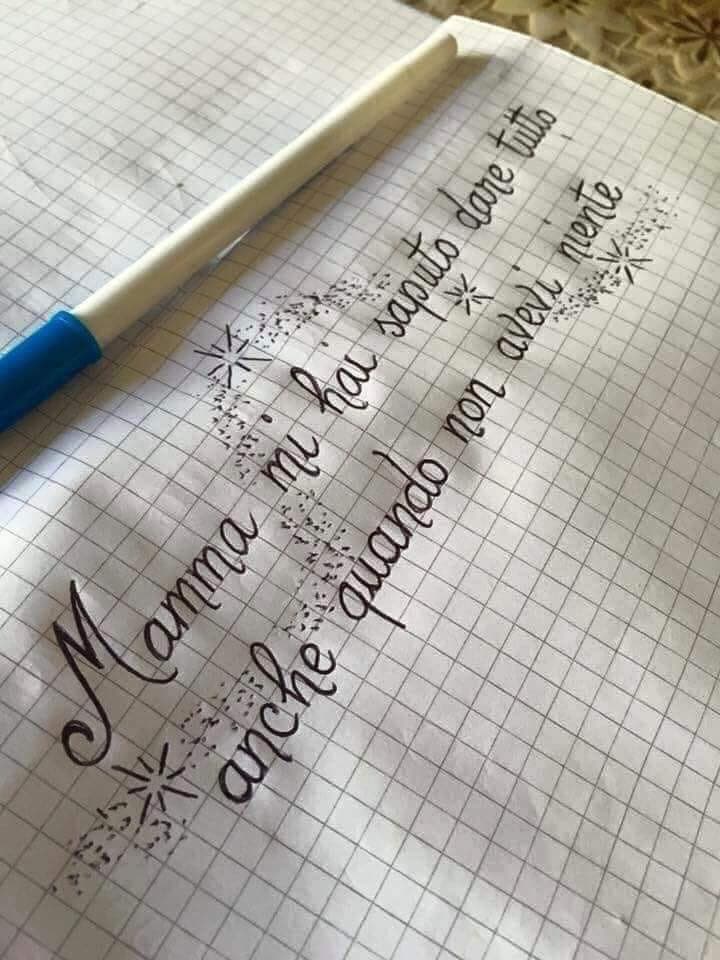 Mamma mi hai saputo dare tutto,
anche quando non avevi niente